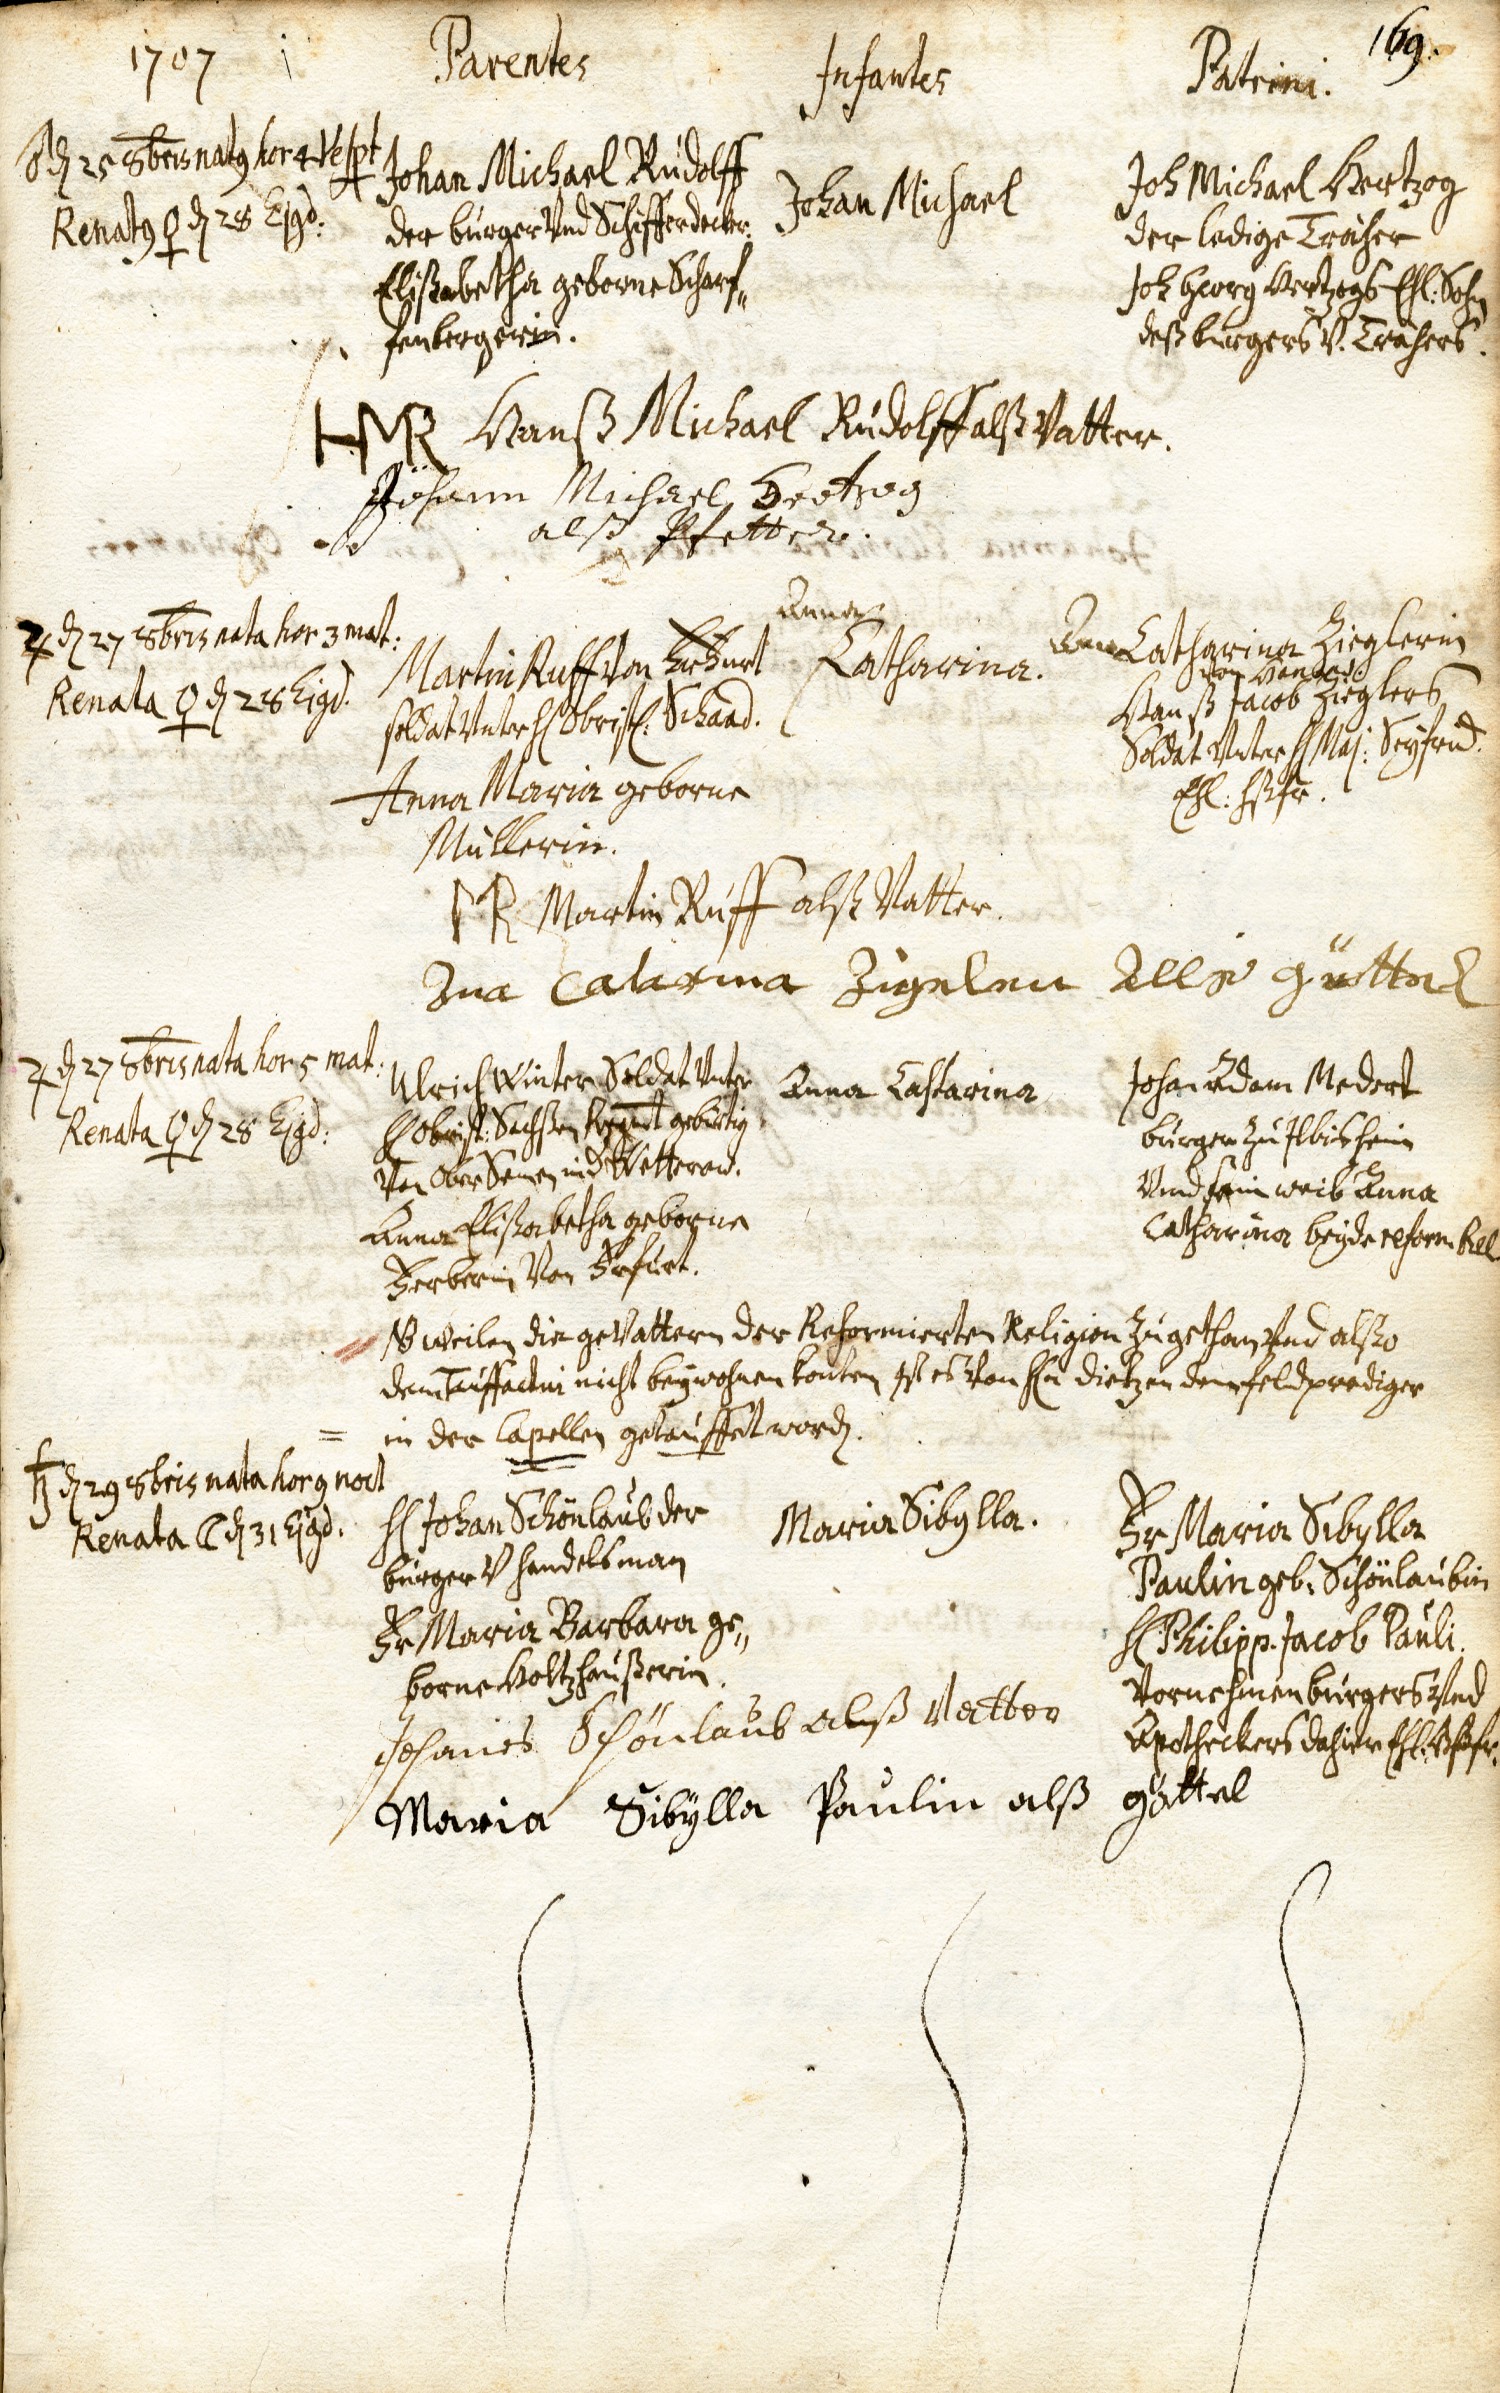 1707
Parentes
Infantes
Patrini.
169.
♂ d 25 8bris nat9 hor 4 Vespt
Renat9 ♀ d 28 Ejgd:
Johan Michael Rudolff
der burger Vnd Schifferdecker.
Elißabetha geborne Scharf„
fenbergerin.
Johan Michael
Joh Michael Hertzog
der ledige Träher
Joh Georg Hertzogs Ehl: Sohn
deß burgers V. Trähers.
HMR Hanß Michael Rudolff alß Vatter.
Johann Michael Hertzog
alß Pfetter.
♃ d 27 8bris nata hor 3 mat:
Renata ♀ d 28 Ejgd.
Martin Ruff von
soldat Vnter H Obrist: Schaad.
Anna Maria geborne
Müllerin.
Anna
Catharina.
Ann Catharina Zieglerin
von
Hanß Jacob Zieglers
Soldat Vnter H Maj: Seyfrid.
Ehl: hßfr.
MR Martin Ruff alß Vatter.
Ana Catarina Zigelen Alls göttel
♃ d 27 8bris nata hor 5 mat:
Renata ♀ d 28 Ejgd:
Ulrich Winter Soldat Vnter
H Obrist: Sachßen Regmt gebürtig
Von Ober Semen in d Wetteraw.
Anna Elißabetha geborne
Ferberin Von Erfurt.
Anna Catharina
Johan Adam Medert
burger zu Ilbisheim
Vnd sein weib Anna
Catharina beyde reform Rel
NB weilen die geVattern der Reformierten Religion zugethan Vnd alßo
dem Tauffactui nicht beywohnen konten ist es Von Hn Dietzen dem feldprediger
in der Capellen getauffet word.
♄ d 29 8bris nata hor 9 noct
Renata ☾ d 31 Ejgd.
H Johan Schönlaub der
burger V handelsman
Fr Maria Barbara ge„
borne Holtzhaußerin.
Maria Sibylla.
Fr Maria Sibylla
Paulin geb: Schönlaubin
H Philipp Jacob Pauli.
Vornehmen burgers Vnd
Apotheckers dahier Ehl: Hßfr.
Johanes Schönlaub alß Vatter
Maria Sibylla Paulin alß göttel